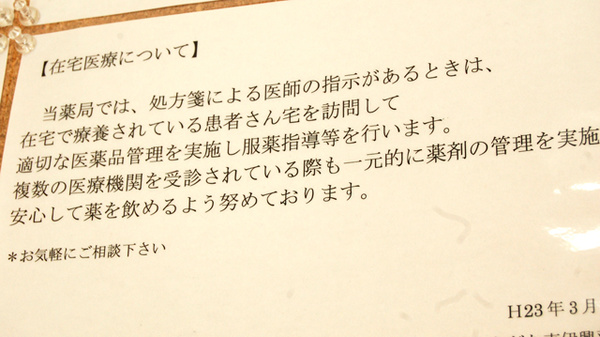 【在宅医療について】
当薬局では、処方箋による医師の指示があるときは、
在宅で療養されている患者さん宅を訪問して
適切な医薬品管理を実施し服薬指導等を行います。
複数の医療機関を受診されている際も一元的に薬剤の管理を実施
安心して薬を飲めるよう努めております。
＊お気軽にご相談下さい
H23年3月